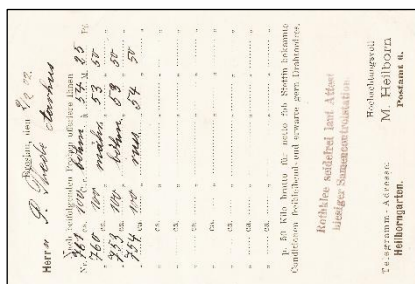 Breslau, den 9/2. 22.
Herrn P. Aarhus
Nach beifolgenden Proben offerire Ihnen
Nr. 761 ca. 100 C. böhm à 54 M. 25 Pf.
„ 760 ca. 100 „ mähr. „ 53 „ 50 „
„ 753 ca. 100 „ böhm. „ 53 „ 50 „
„ 754 ca. 100 „ „ 54 „ 50 „
„ ca. „ „ „
„ ca. „ „ „
„ ca. „ „ „
„ ca. „ „ „
p. 50 Kilo brutto für netto fob Stettin bekannte
Conditionen freibleibend und erwarte gern Drahtordre.
Rothklee seidefrei laut Attest
hiesiger Samencontrolstation.
Hochachtungsvoll
M. Heilborn
Postamt 6.
Telegramm-Adresse:
Heilborngarten.